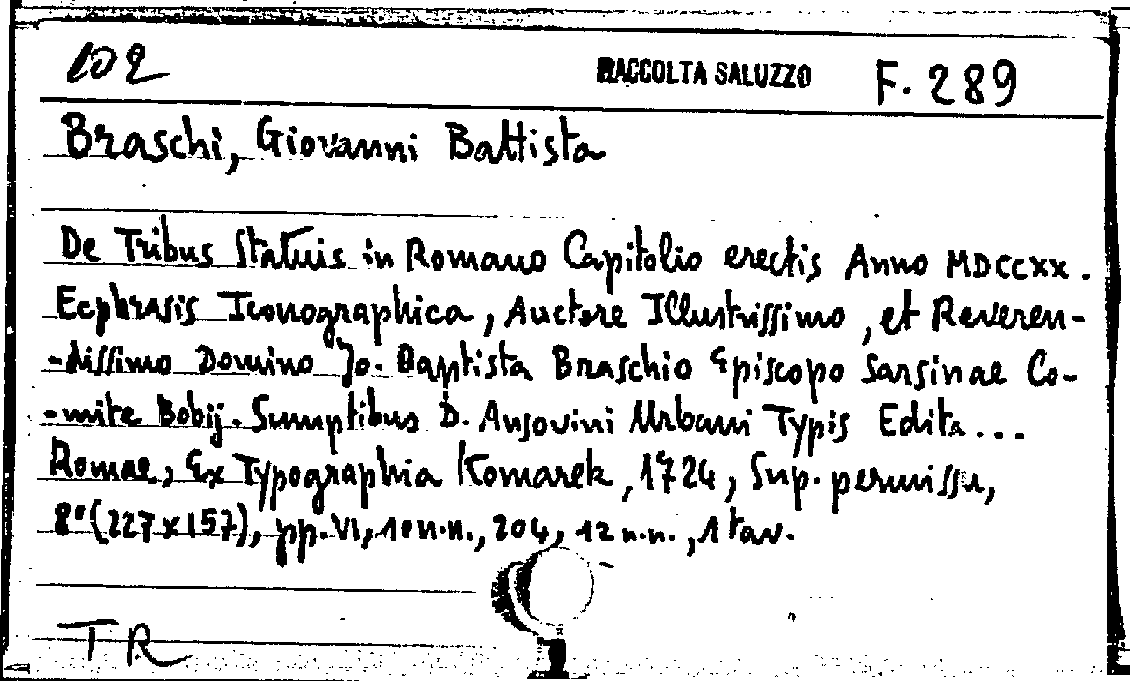 102 RACCOLTA SALUZZO F. 289
Braschi, Giovanni Battista
De Tribus Statuis in Romano Capitolio erectis Anno MDCCXX.
Ecphrasis Iconographica, Auctore Illustrissimo, et Reveren-
-dissimo Domino Jo. Baptista Braschio Episcopo Sarsinae Co-
-mite Bobij. Sumptibus D. Ansovini Urbani Typis Edita...
Romae, Ex Typographia Komarek, 1724, Sup. permissu,
8° (227x157), pp. VI, 10 n.n., 204, 12 n.n., 1 tav.
TR